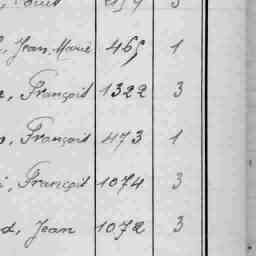 Jean-Marie 465 1
François 1322 3
François 473 1
François 1074 3
Jean 1072 3